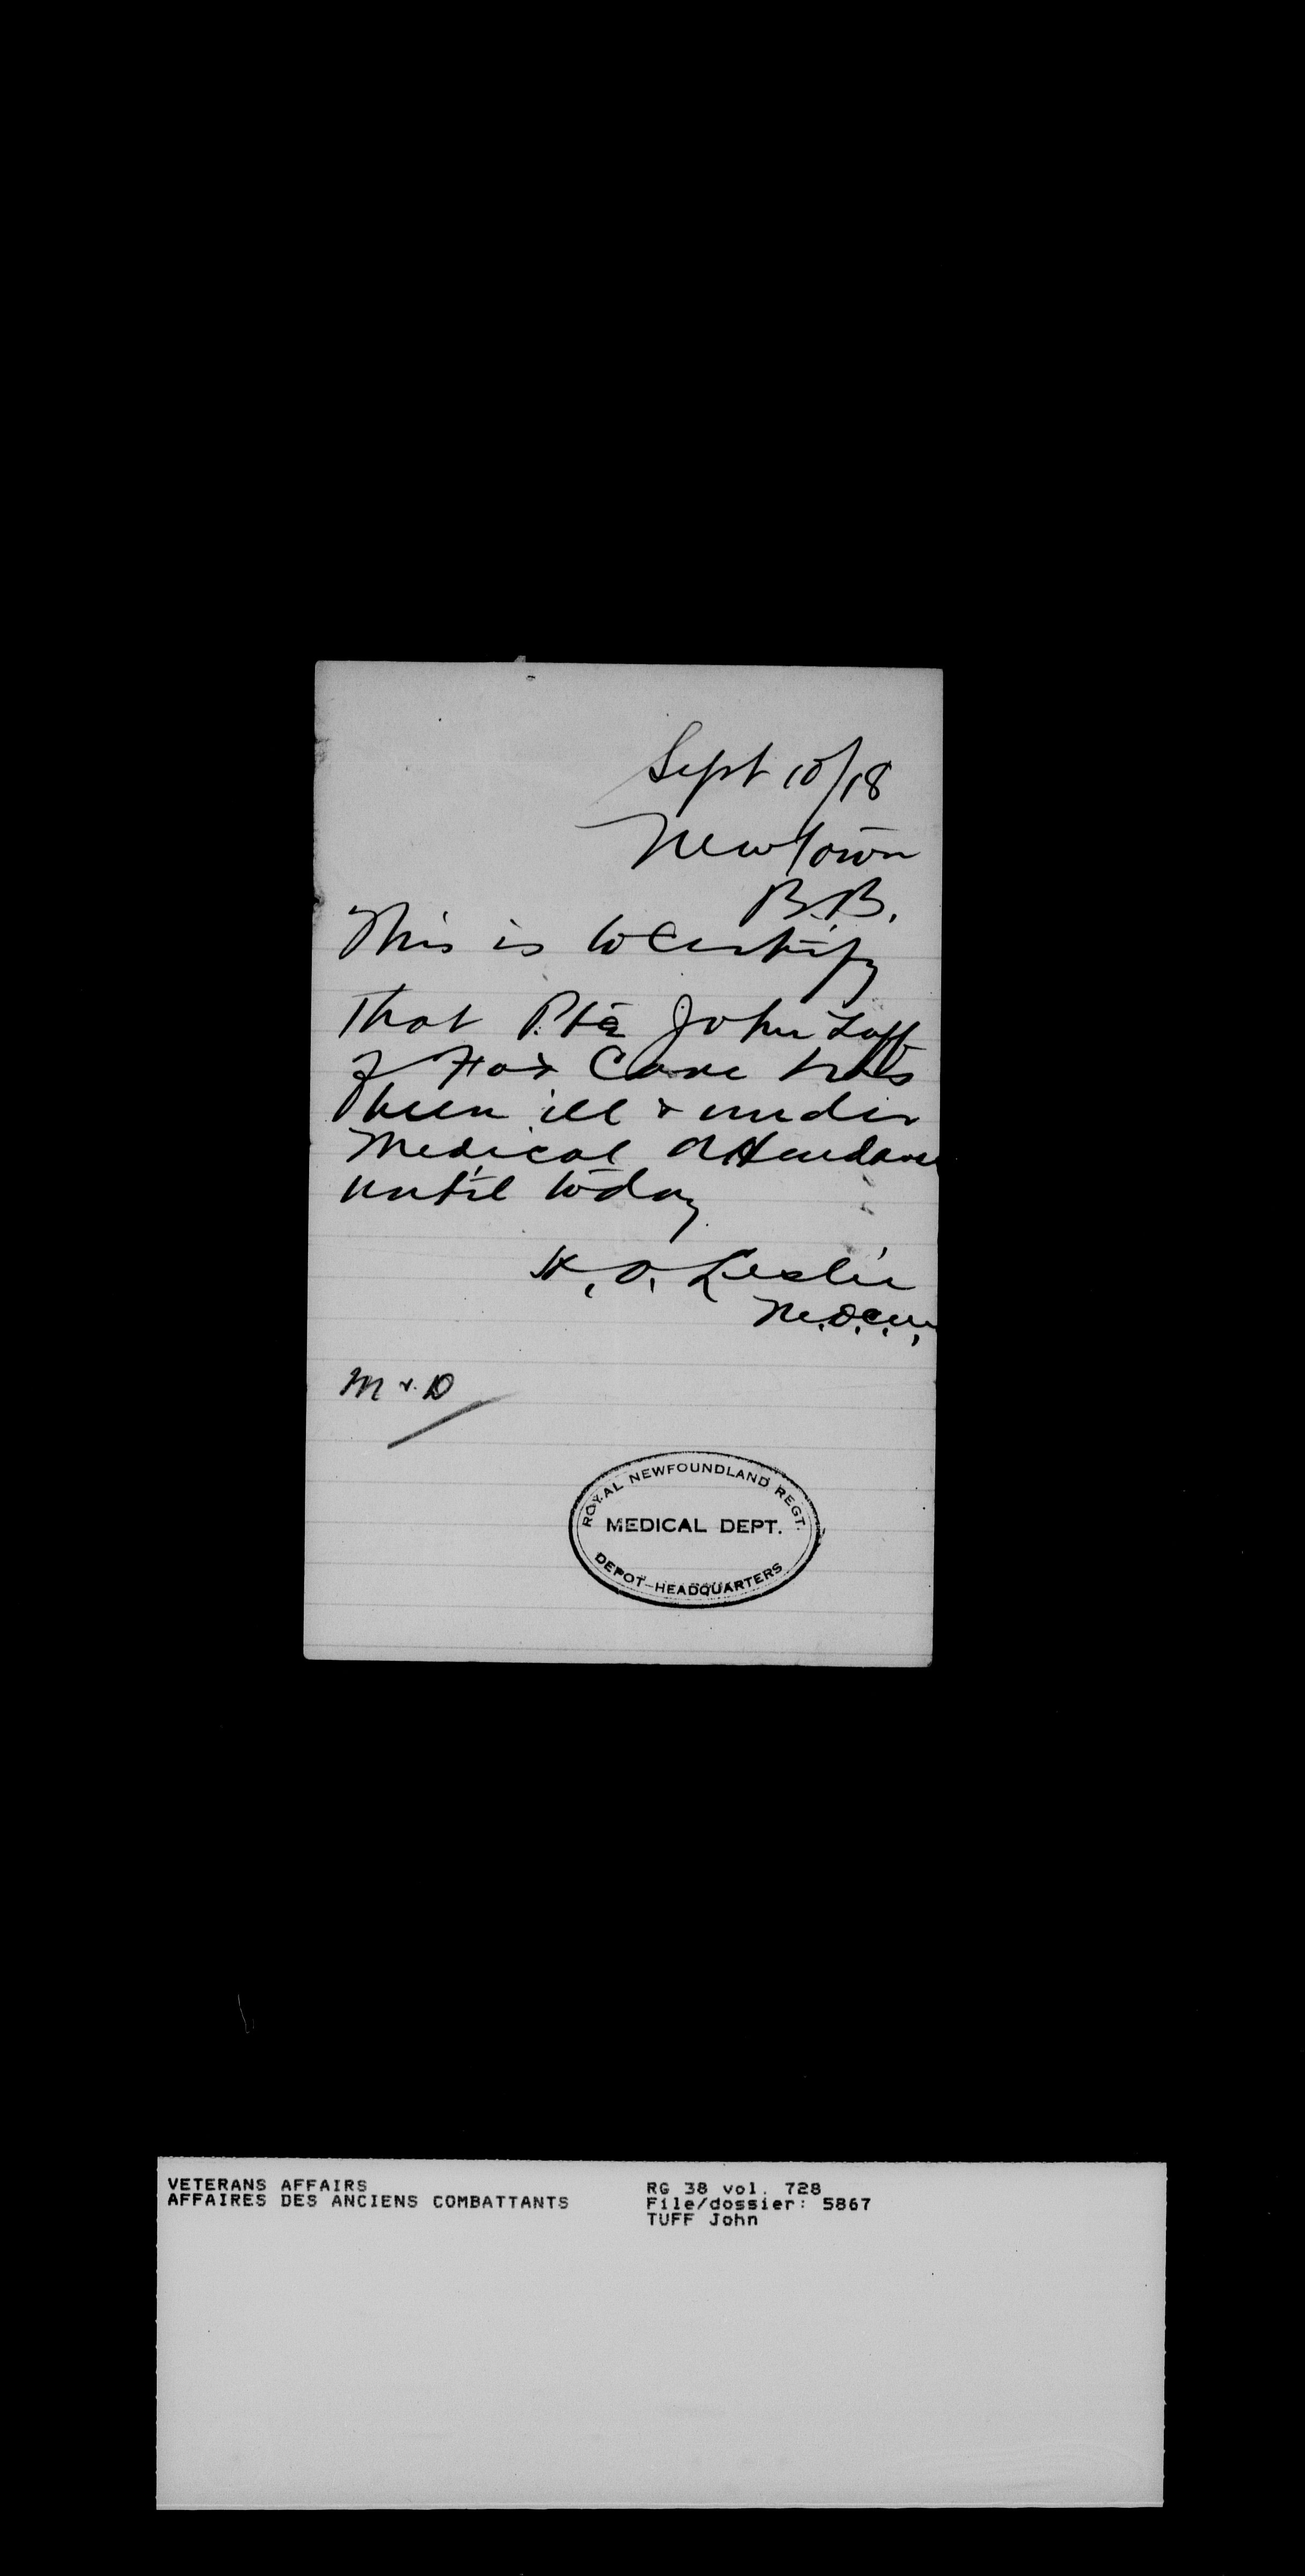 Sept 10/18
Newtown
B.B.
This is to Certify
that Pte John Tuff
of Fox Cove has
been ill & under
Medical Attendance
until today
H. O. Leslie
M.D.C.M.
M & D
ROYAL NEWFOUNDLAND REGT.
MEDICAL DEPT.
DEPOT-HEADQUARTERS
VETERANS AFFAIRS
AFFAIRES DES ANCIENS COMBATTANTS
RG 38 vol. 728
File/dossier: 5867
TUFF John